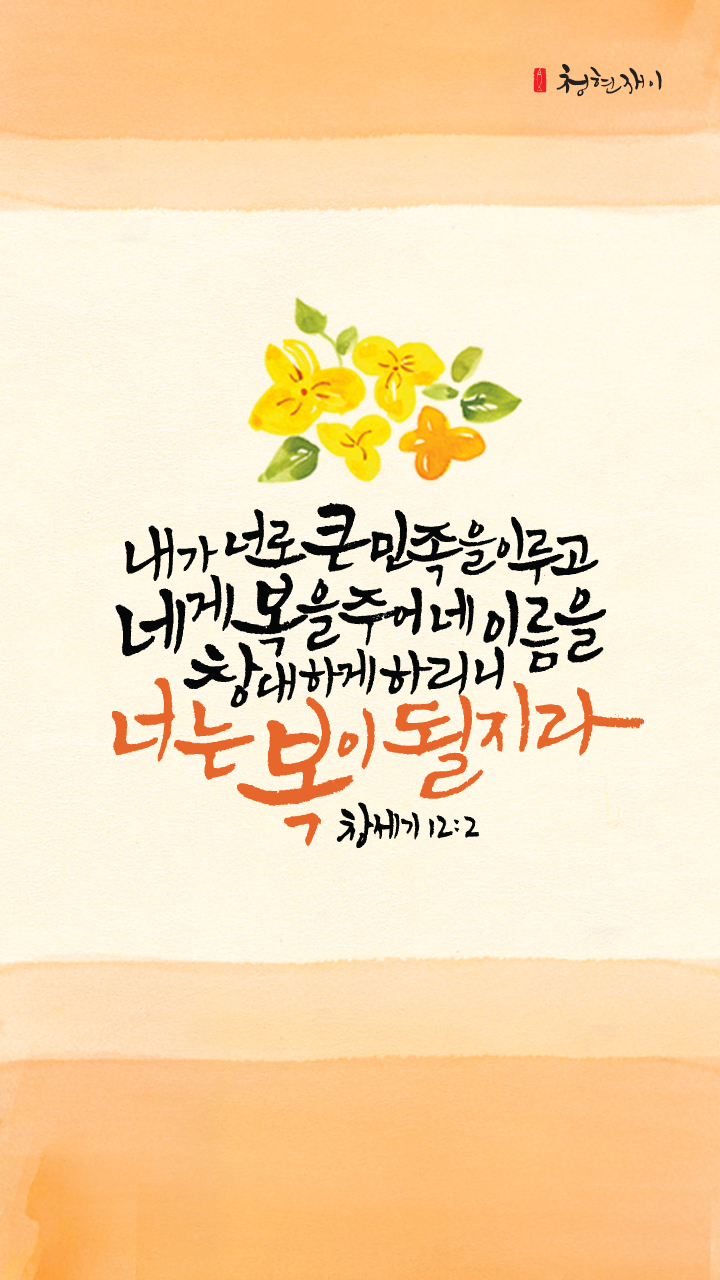 청현재이
내가 너로 큰 민족을 이루고
네게 복을 주어 네 이름을
창대하게 하리니
너는 복이 될지라
창세기 12:2